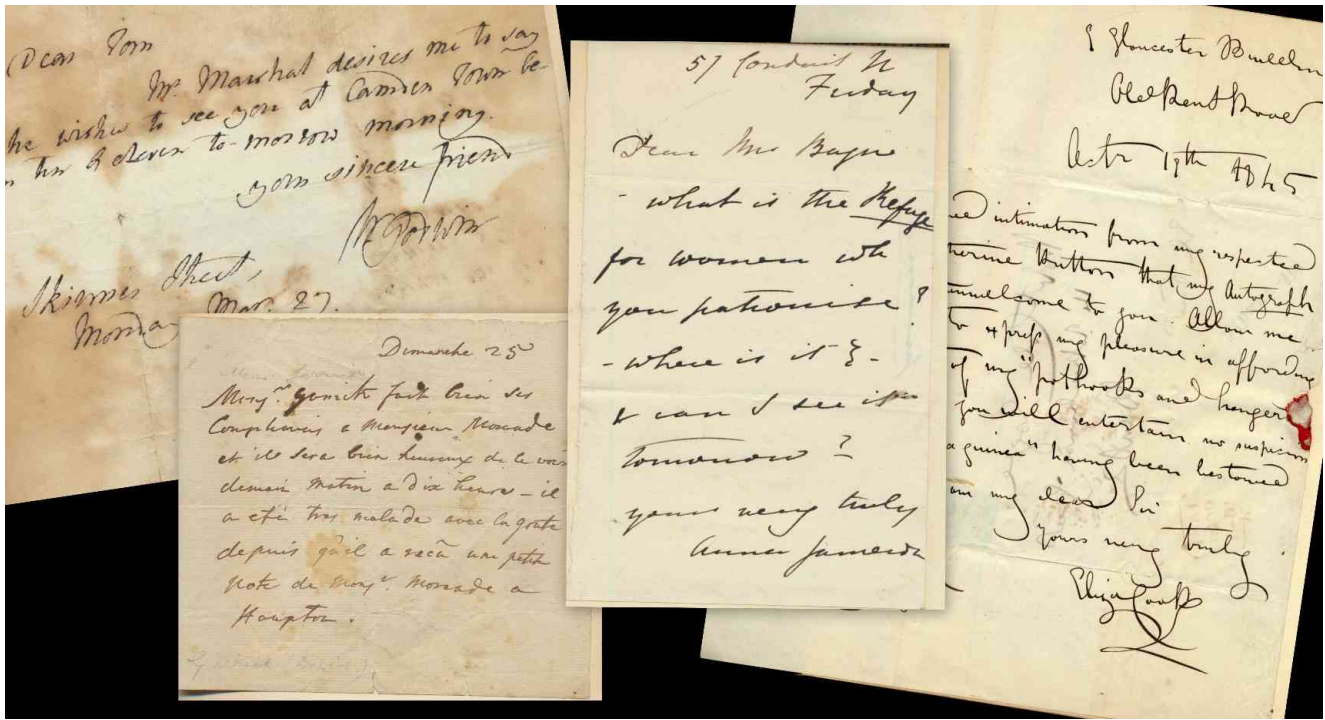 Dear Tom
Mr. Marshal desires me to say
he wishes to see you at Camden Town be-
n ten & eleven to-morrow morning.
your sincere friend
W Godwin
Skinner Street,
Monday Mar. 27.
Dimanche 25
Monsr. fait bien ses
Complimens a Monsieur
et il sera bien heureux de le voir
demain matin a dix heure - il
a eté tres malade avec la goute
depuis qu'il a recu une petite
Note de Monsr. a
Hampton.
57 Conduit St
Friday
Dear Mrs
- what is the Refuge
for women wh
you patronise?
- where is it? -
& can I see it
tomorrow?
yours very truly
Anna Jameson
Gloucester
Old Kent Road
19th 1845
ed intimation from my respected
therine Hutton that my Autograph
unwelcome to you. Allow me
to express my pleasure in affording
of my "pothooks and hangers
you will entertain no suspicion
a guinea" having been bestowed
am my dear Sir
yours very truly
Eliza Cook